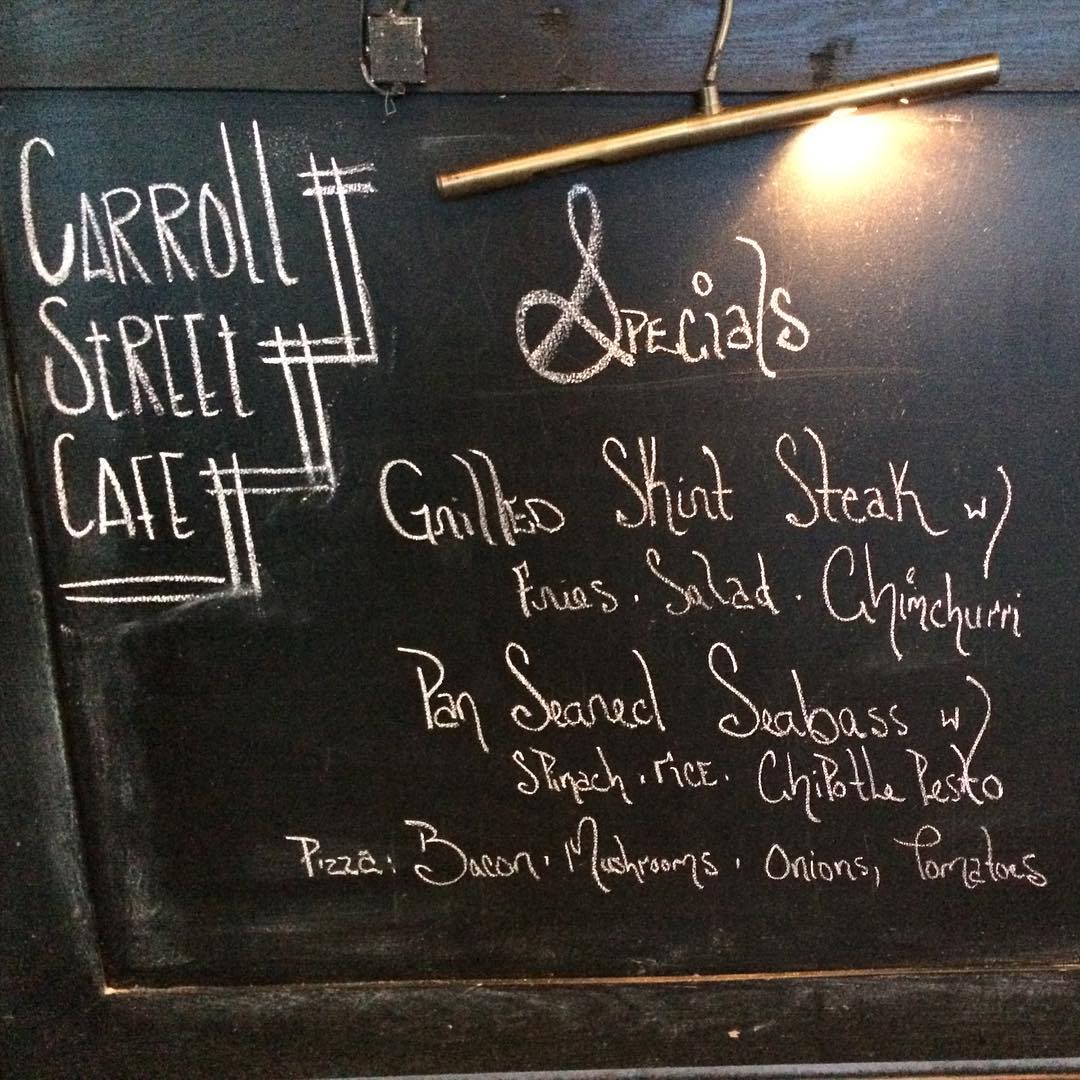 CARROLL
STREET
CAFE
Specials
Grilled Skirt Steak w/
Fries . Salad . Chimchurri
Pan Seared Seabass w/
Spinach . rice . Chipotle Pesto
Pizza: Bacon . Mushrooms . Onions, Tomatoes